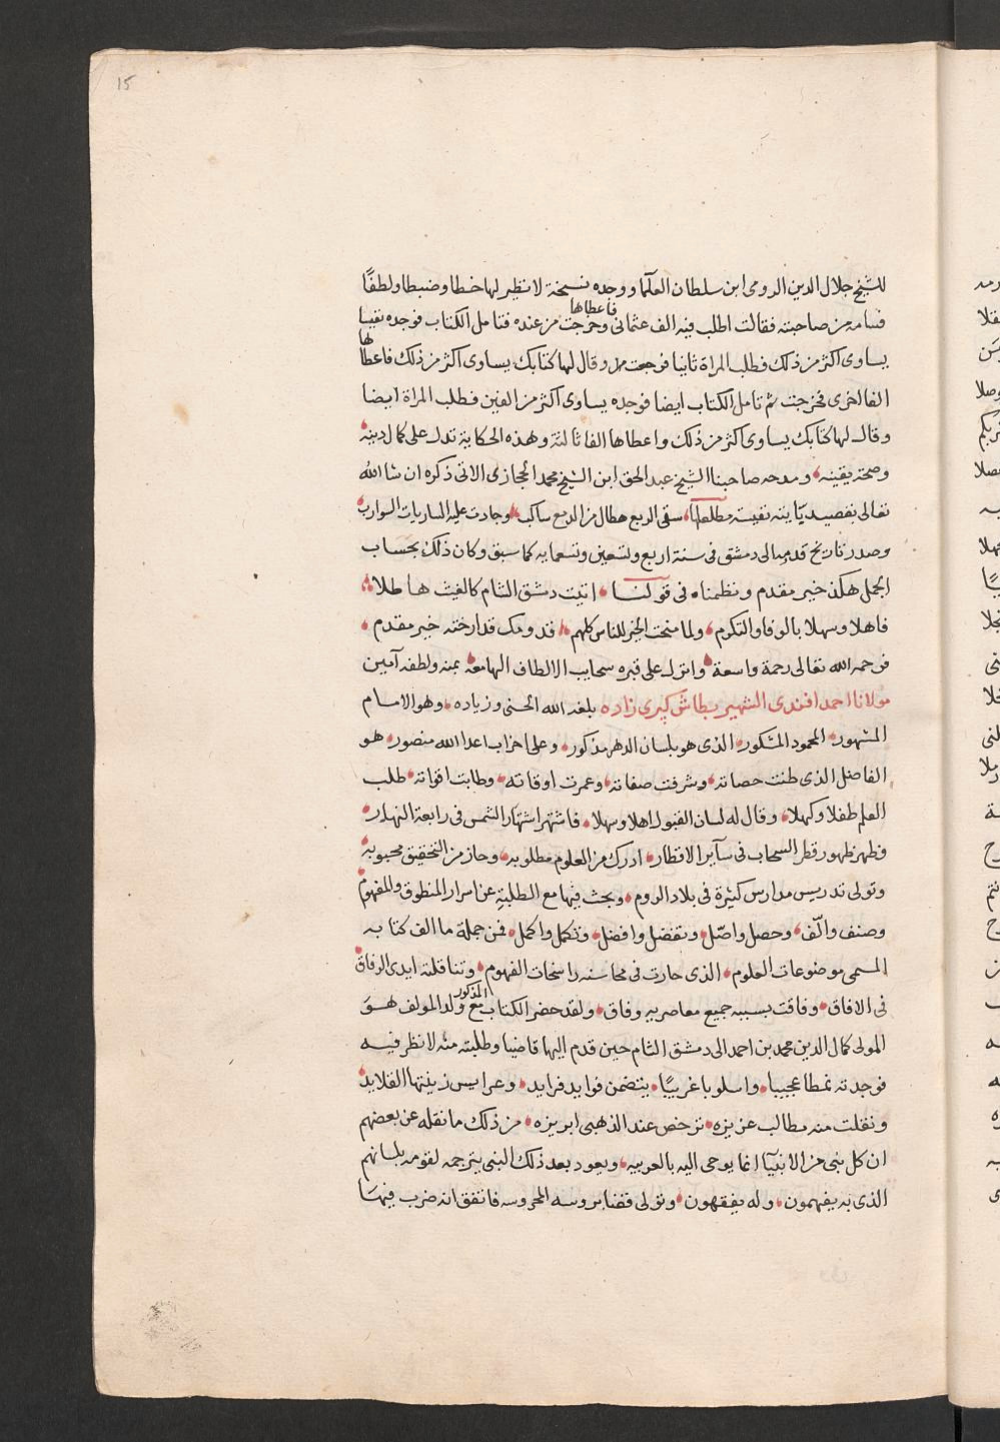 15
للشيخ جلال الدين الرومى ابن سلطان العلما ووجده نسخة لا نظير لها خطا وضبطا ولطفًا
فسامه من صاحبته فقالت اطلب فيه الف عثمانى فاعطاها وخرجت من عنده فتامل الكتاب فوجده نفيسا
يساوى اكثر من ذلك فطلب المراة ثانيا فرجعت وقال لها كتابك يساوى اكثر من ذلك فاعطاها
الفا اخرى فخرجت ثم تامل الكتاب ايضا فوجده يساوى اكثر من الفين فطلب المراة ايضا
وقال لها كتابك يساوى اكثر من ذلك واعطاها الفا ثالثة وهذه الحكاية تدل على كمال دينه
وصحة يقينه ومدحه صاحبنا الشيخ عبد الحق ابن الشيخ محمد الحجازى الاتى ذكره ان شا الله
تعالى بقصيدة نفيسة مطلعها سقى الربع هطال من الدمع ساكب وجادت عليه الساريات السوارب
وصدر تاريخ قدومه الى دمشق فى سنة اربع وتسعين وتسعمايه كما سبق وكان ذلك بحساب
الجمل هكذا خير مقدم ونظمناه فى قولنا اتيت دمشق الشام كالغيث هاطلا
فاهلا وسهلا بالوفا والتكرم ولما منحت الخير للناس كلهم قدومك قد ارخته خير مقدم
فرحمه الله تعالى رحمة واسعة وانزل على قبره سحايب الالطاف الهامعة بمنه ولطفه آمين
مولانا احمد افندى الشهير بطاش كپرى زاده بلغه الله الحسنى وزياده وهو الامام
المشهور المحمود المشكور الذى هو بلسان الدهر مذكور وعلى احزاب اعدا الله منصور هو
الفاضل الذى طنت حصاته وشرفت صفاته وعمرت اوقاته وطابت اقواته طلب
العلم طفلا وكهلا وقال له لسان القبول اهلا وسهلا فاشتهر اشتهار الشمس فى رابعة النهار
وظهر ظهور قطر السحاب فى ساير الاقطار ادرك من العلوم مطلوبه وحاز من التحقيق محبوبه
وتولى تدريس مدارس كثيرة فى بلاد الروم وبحث فيها مع الطلبة عن اسرار المنطوق والمفهوم
وصنف والّف وحصل واصّل وتفضل وافضل وتكمل واكمل فمن جملة ما الف كتابه
المسمى موضوعات العلوم الذى حارت فى محاسنه راسخات الفهوم وتناقلته ايدى الرفاق
فى الافاق وفاقت بسببه جميع معاصريه وفاق ولقد حضر الكتاب المذكور مع ولد المولف هو
المولى كمال الدين محمد بن احمد الى دمشق الشام حين قدم اليها قاضيا وطلبته منه لانظر فيه
فوجدته نمطا عجيبا واسلوبا غريبًا يتضمن فوايد فرايد وعرايس زينتها القلايد
ونقلت منه مطالب عزيزه ترخص عند الذهبى ابريزه من ذلك ما نقله عن بعضهم
ان كل نبى من الانبيآ انما يوحى اليه بالعربيه ويعود بعد ذلك النبى يترجمه لقومه بلسانهم
الذى به يفهمون وله يفقهون وتولى قضا بروسه المحروسه فاتفق انه ضرب فيها